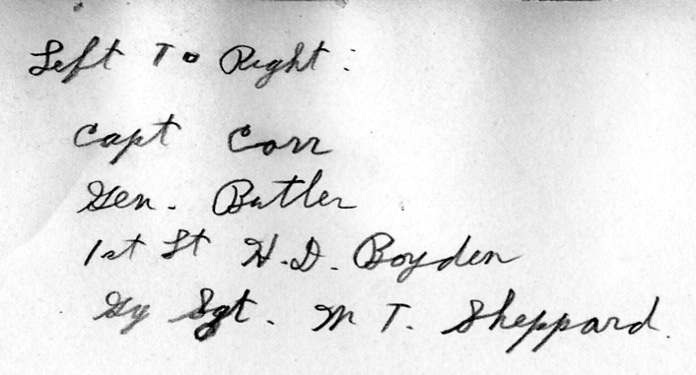 Left To Right:
Capt Corr
Gen. Butler
1st Lt H.D. Boyden
Gy Sgt. M T. Sheppard.